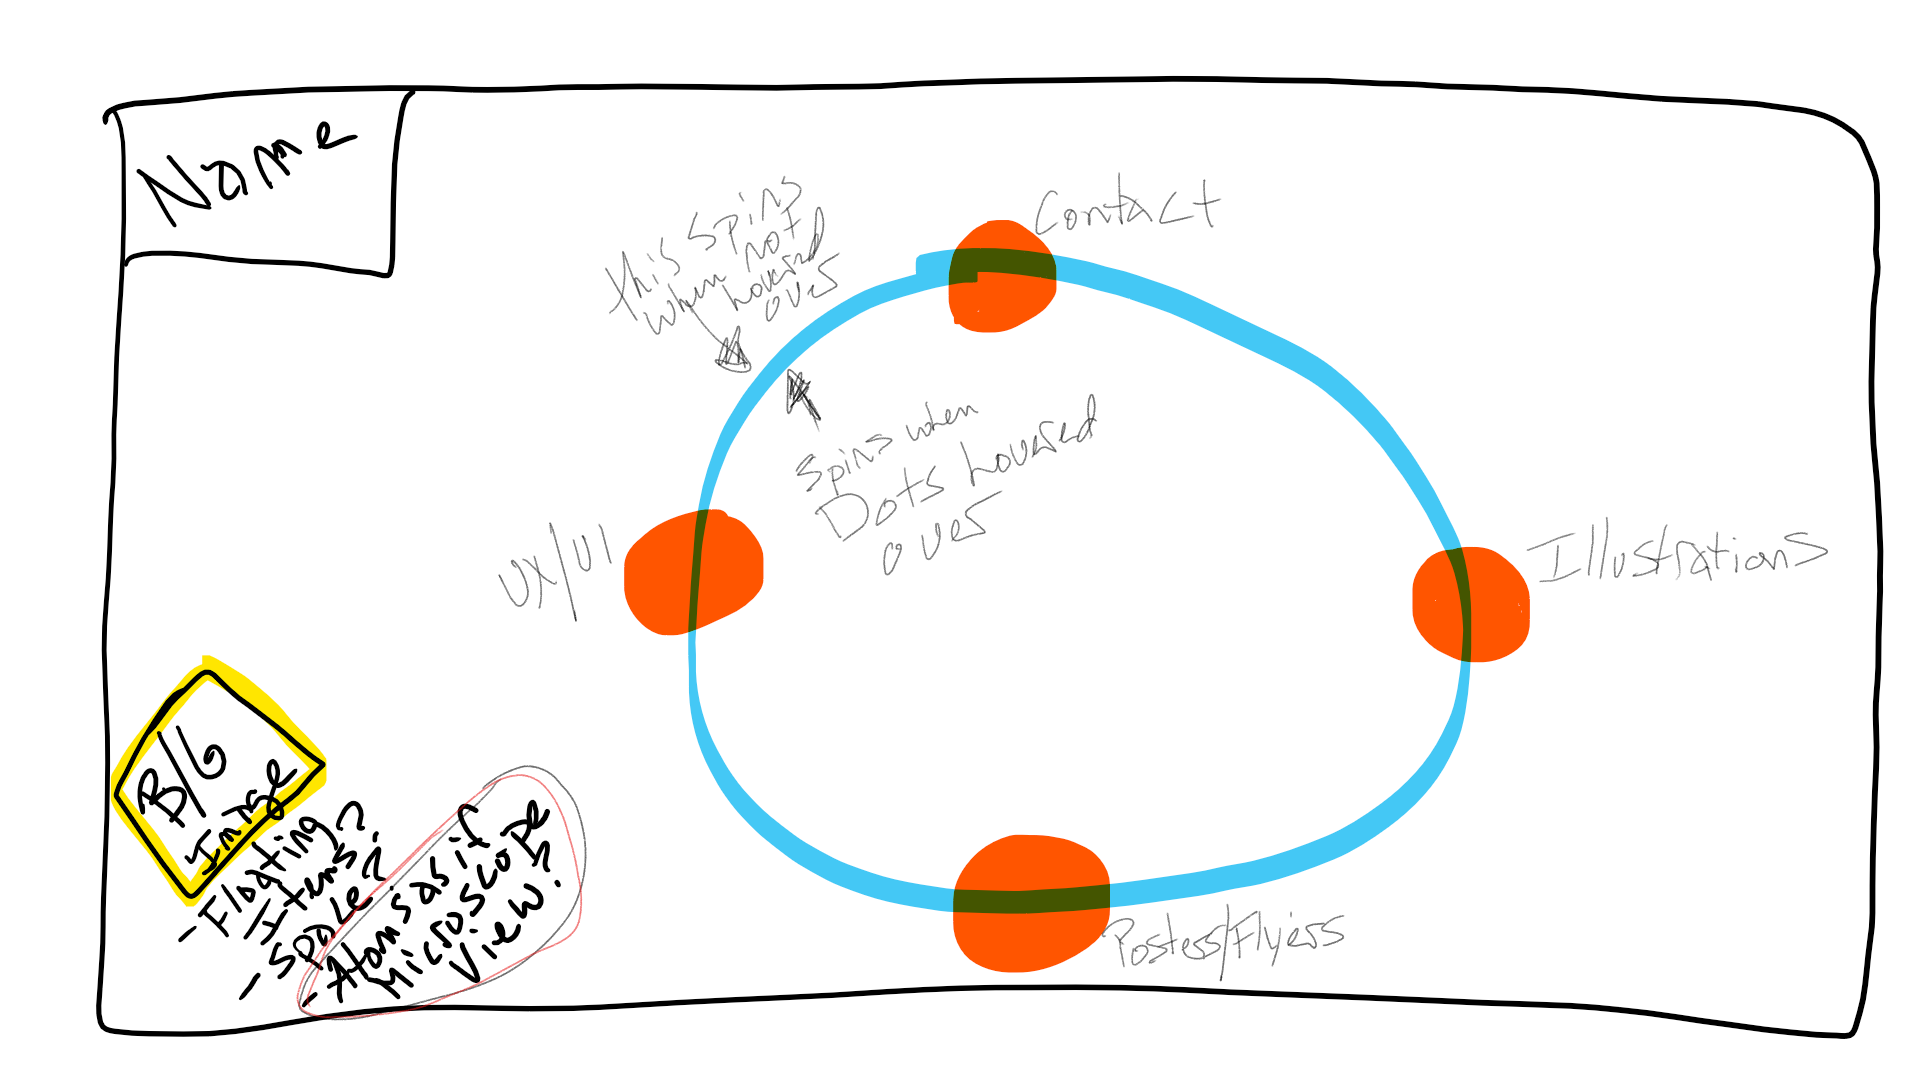 Name
Contact
this spins
when not
hovered
over
spins when
Dots hovered
over
UX/UI
Illustrations
Posters/Flyers
B/G
Image
- Floating
Items?
- Space?
- Atoms as if
Microscope
View?